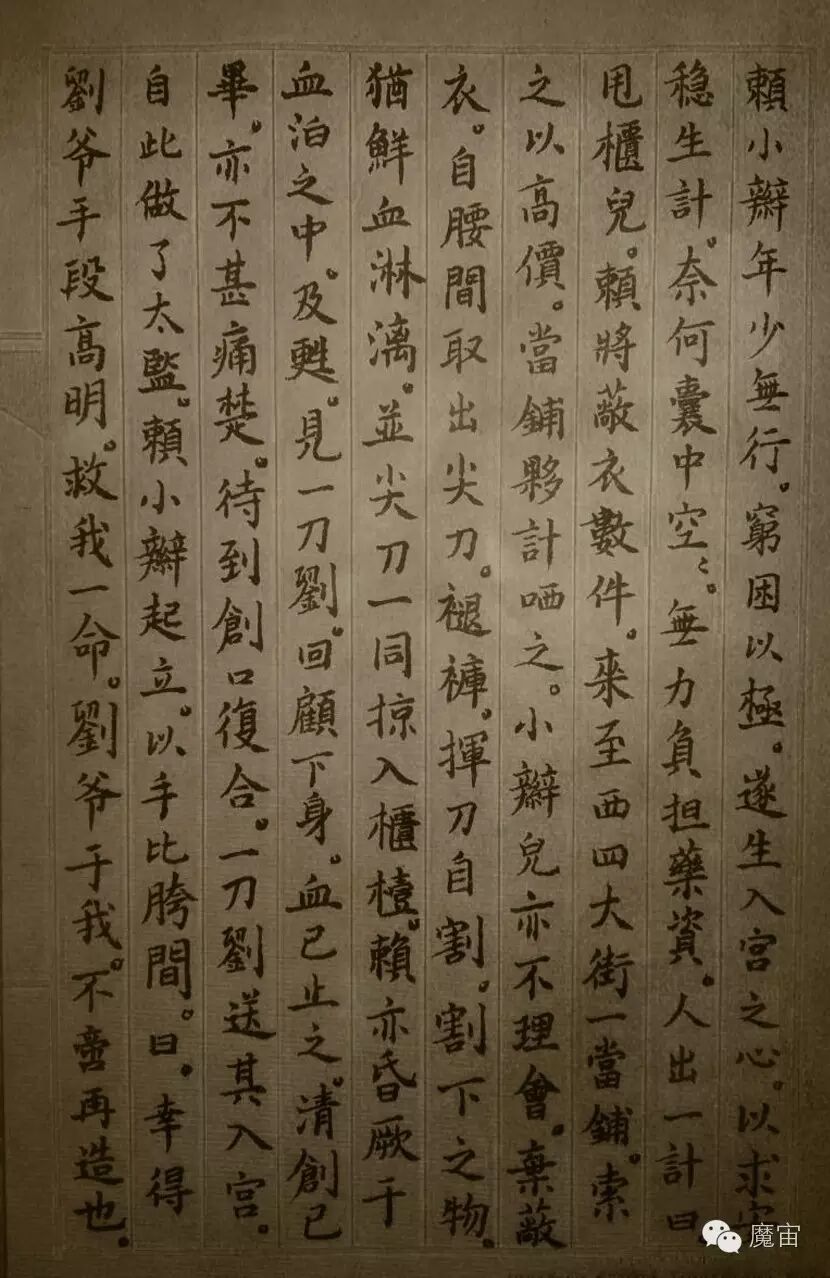 賴小辮年少無行。窮困以極。遂生入宮之心。以求安
穩生計。奈何囊中空〻。無力負担藥資。人出一計曰。
甩櫃兒。賴將敝衣數件。來至西四大街一當鋪。索
之以高價。當鋪夥計哂之。小辮兒亦不理會。棄敝
衣。自腰間取出尖刀。褪褲。揮刀自割。割下之物。
猶鮮血淋漓。並尖刀一同掠入櫃檯。賴亦昏厥于
血泊之中。及甦。見一刀劉。回顧下身。血已止之。清創已
畢。亦不甚痛楚。待到創口復合。一刀劉送其入宮。
自此做了太監。賴小辮起立。以手比胯間。曰。幸得
劉爷手段高明。救我一命。劉爷于我。不啻再造也。
魔宙